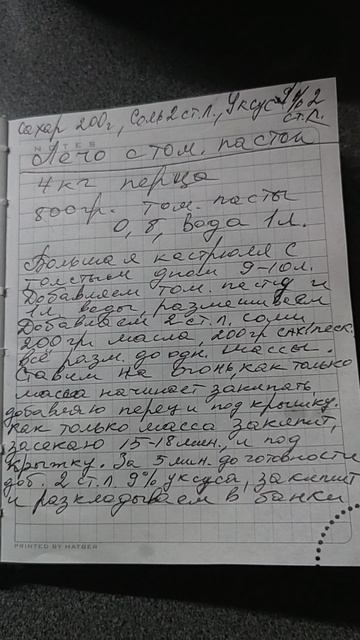 сахар 200г, Соль 2 ст.л., Уксус 9% 2
ст.л.
NOTES
Лечо с том. пастой
4 кг перца
800гр. том. пасты
0,8, вода 1 л.
Большая кастрюля с
толстым дном 9-10л.
Добавляем том. пасту и
1л. воды, размешиваем
Добавляем 2 ст.л. соли,
200гр. масла, 200гр сах. песк.
всё разм. до одн. массы.
Ставим на огонь, как только
масса начинает закипать
добавляю перец и под крышку.
как только масса закипит,
засекаю 15-18 мин., и под
крышку. За 5 мин. до готовности
доб. 2 ст.л. 9% уксуса, закипит
и раскладываем в банки
PRINTED BY HATBER